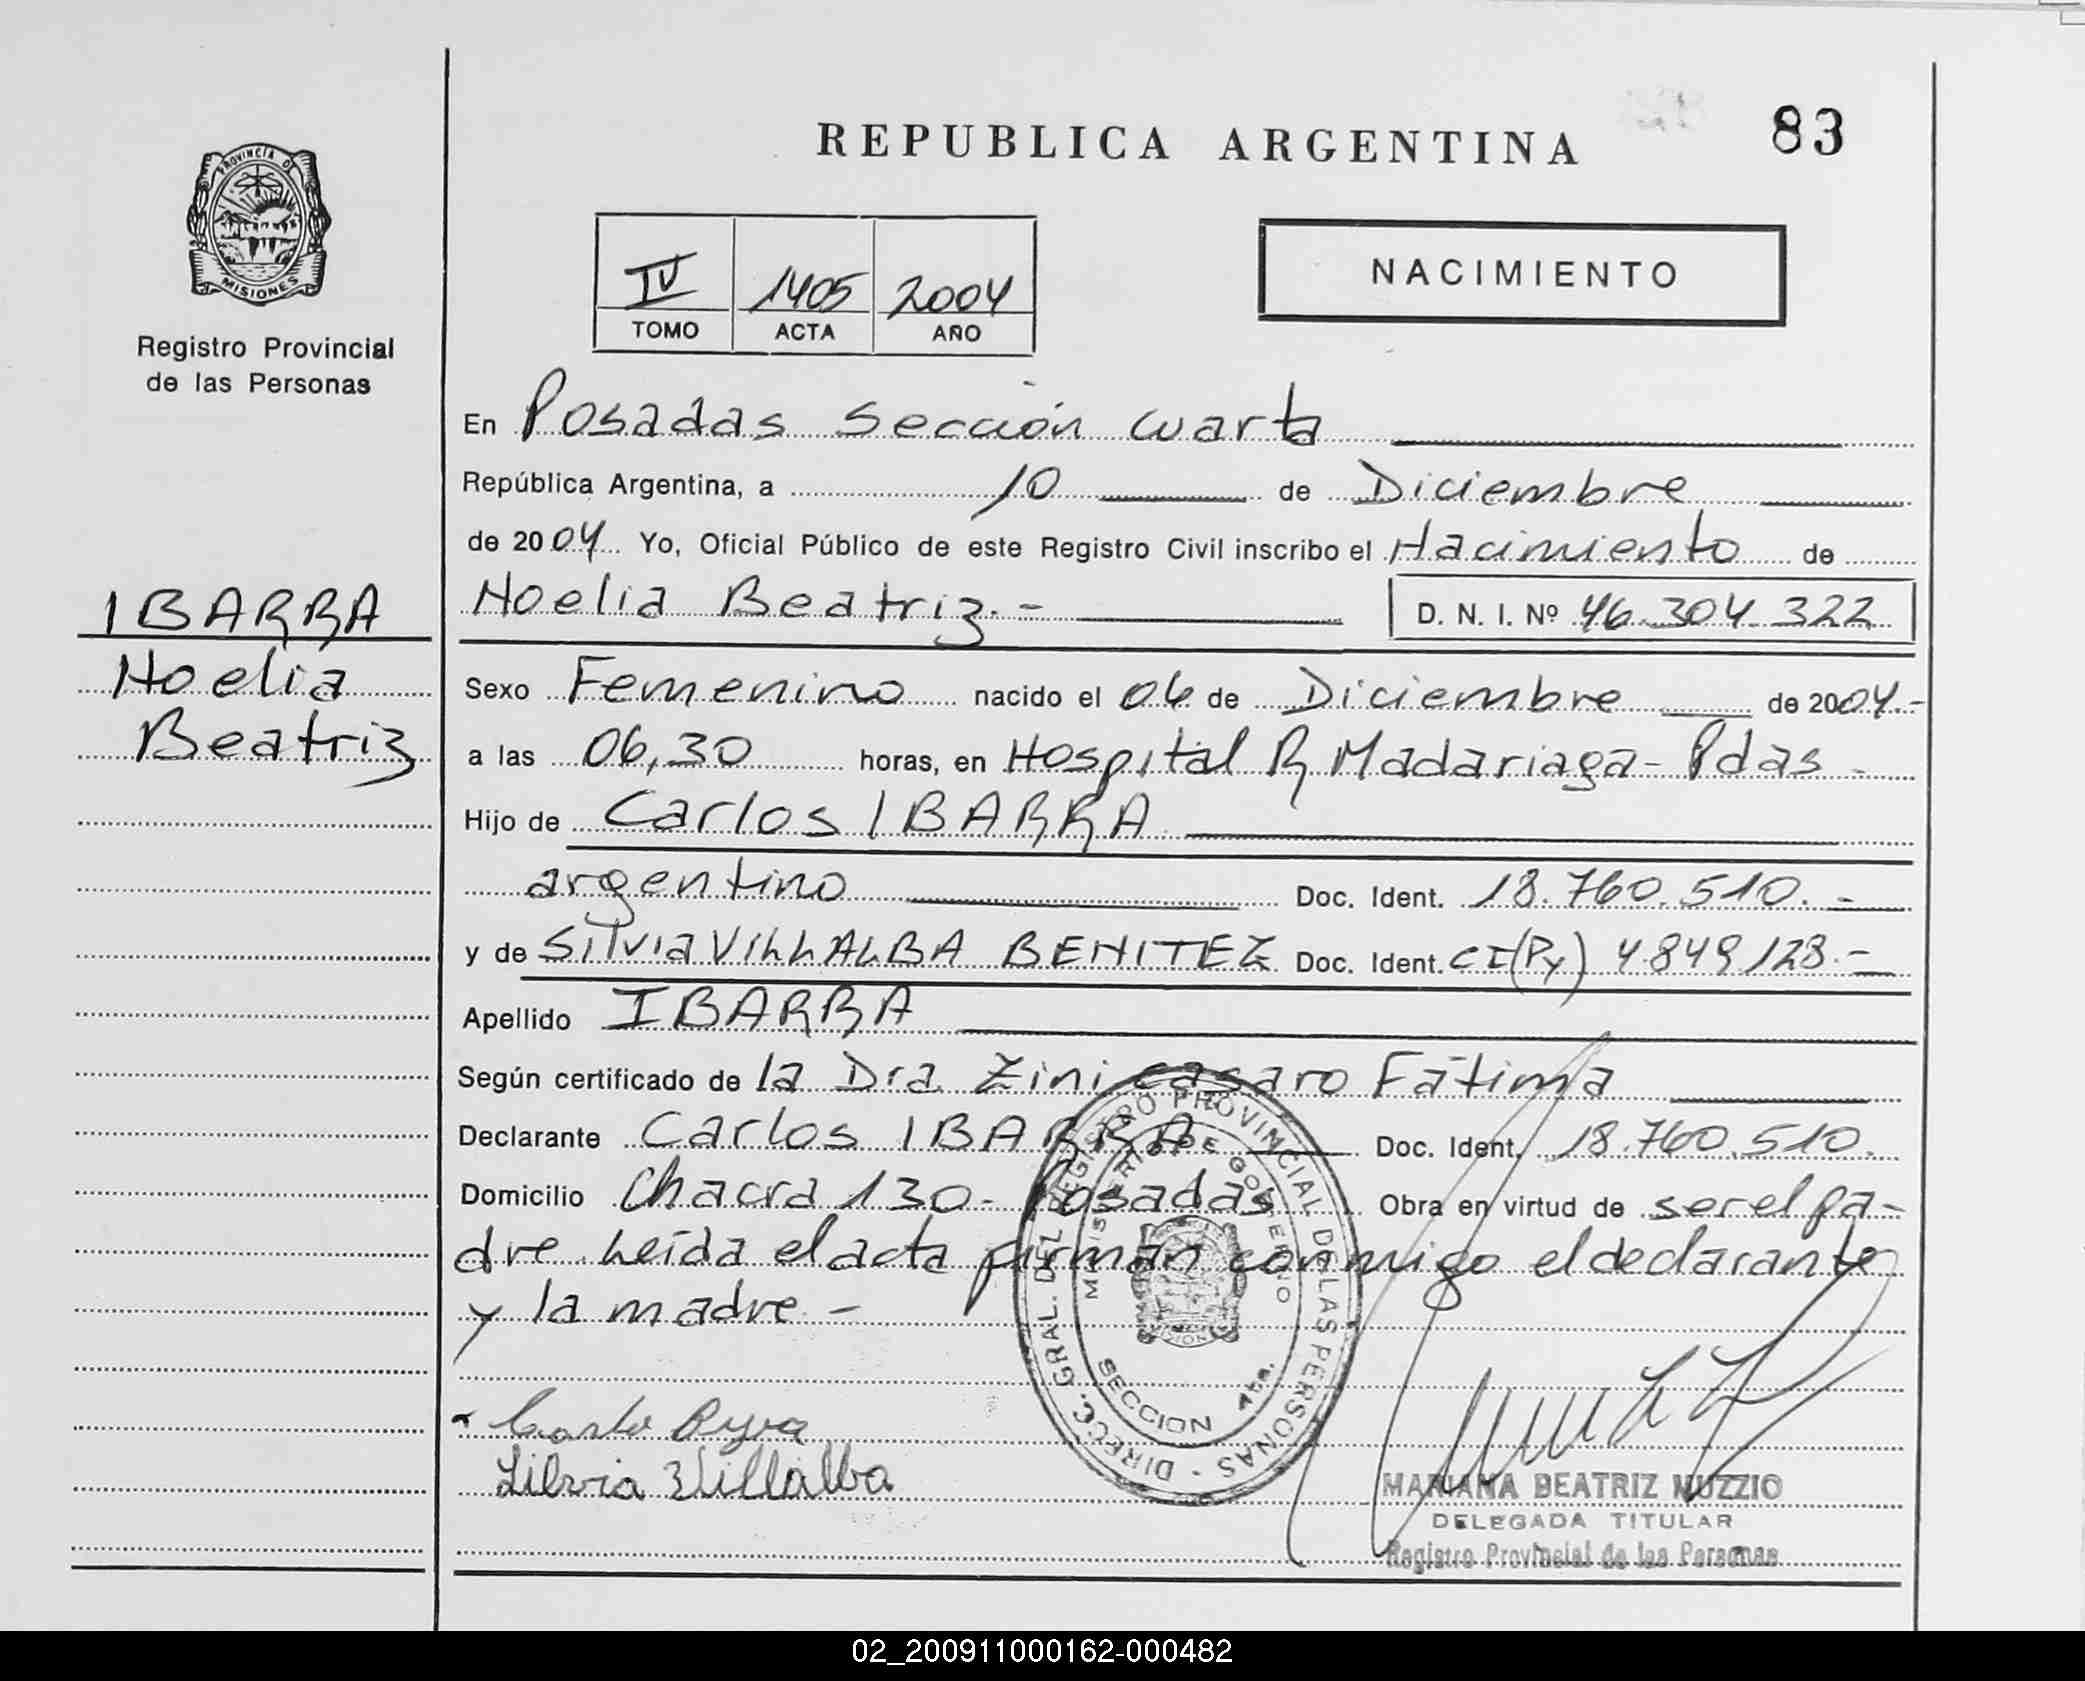 REPUBLICA ARGENTINA
83
PROVINCIA DE
MISIONES
Registro Provincial
de las Personas
IV 1405 2004
TOMO ACTA AÑO
NACIMIENTO
En Posadas Sección cuarta
República Argentina, a 10 de Diciembre
de 2004 Yo, Oficial Público de este Registro Civil inscribo el Nacimiento de
Noelia Beatriz.-
D. N. I. Nº 46.304.322
IBARRA
Noelia
Beatriz
Sexo Femenino nacido el 06 de Diciembre de 2004.-
a las 06,30 horas, en Hospital R Madariaga - Pdas -
Hijo de Carlos IBARRA
argentino Doc. Ident. 18.760.510.-
y de Silvia VILLALBA BENITEZ Doc. Ident. CI(Py) 4.849.128.-
Apellido IBARRA
Según certificado de la Dra Zini Casaro Fátima
Declarante Carlos IBARRA Doc. Ident. 18.760.510.
Domicilio Chacra 130- Posadas Obra en virtud de ser el pa-
dre. Leída el acta firman conmigo el declarante
y la madre. -
DIRECC. GRAL. DEL REGISTRO PROVINCIAL DE LAS PERSONAS -
MINISTERIO DE GOBIERNO
SECCION 4ta.
Silvia Villalba
MARIANA BEATRIZ MUZZIO
DELEGADA TITULAR
Registro Provincial de las Personas
02_200911000162-000482